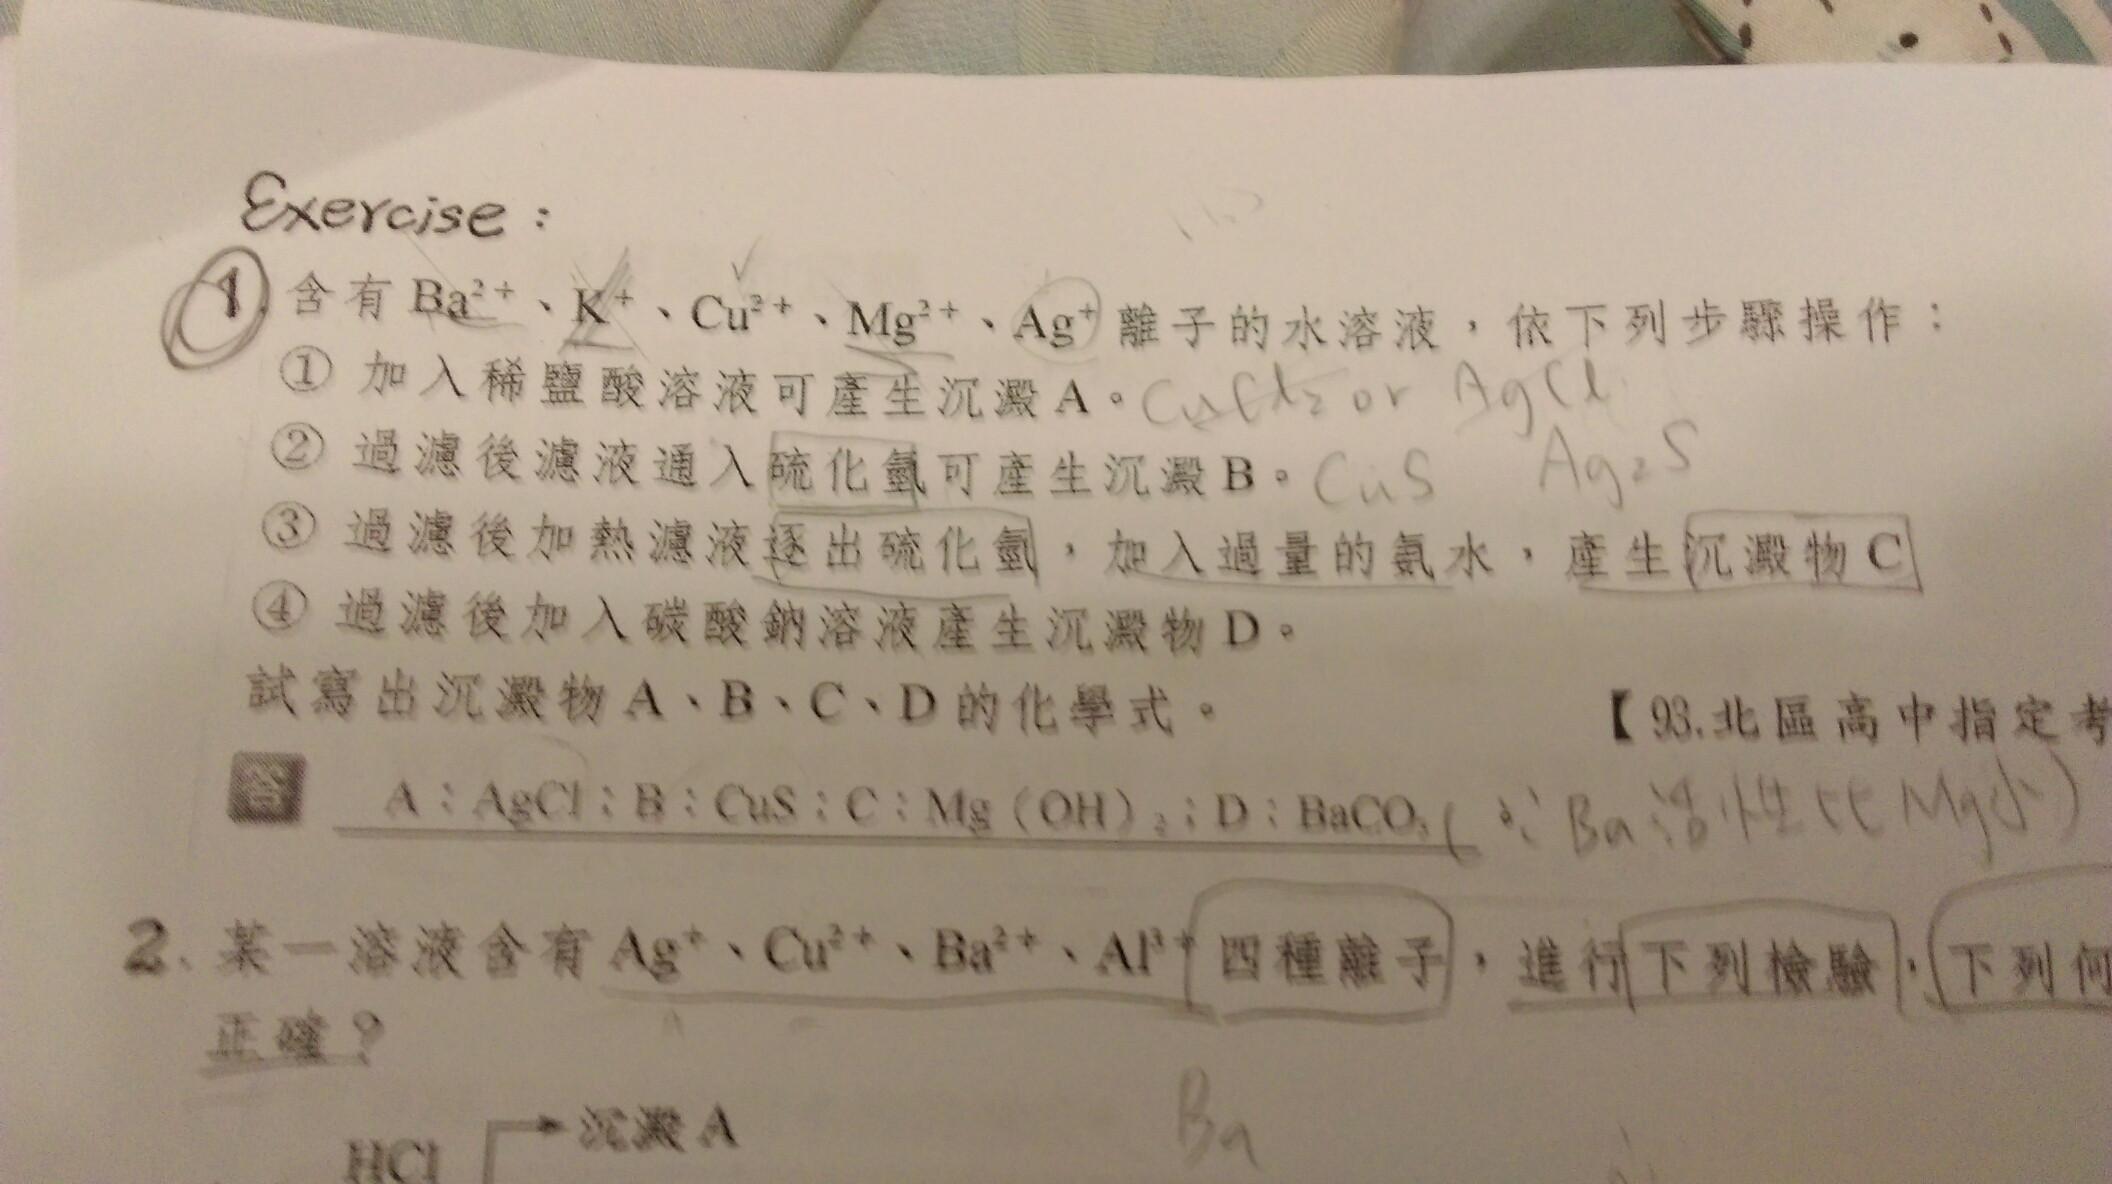 Exercise：
1. 含有 Ba²⁺、K⁺、Cu²⁺、Mg²⁺、Ag⁺ 離子的水溶液，依下列步驟操作：
① 加入稀鹽酸溶液可產生沉澱 A。CuCl₂ or AgCl
② 過濾後濾液通入硫化氫可產生沉澱 B。CuS Ag₂S
③ 過濾後加熱濾液逐出硫化氫，加入過量的氨水，產生沉澱物 C
④ 過濾後加入碳酸鈉溶液產生沉澱物 D。
試寫出沉澱物 A、B、C、D 的化學式。 【93.北區高中指定考
答 A：AgCl；B：CuS；C：Mg（OH）₂；D：BaCO₃ (∵Ba活性比Mg小)
2. 某一溶液含有 Ag⁺、Cu²⁺、Ba²⁺、Al³⁺ 四種離子，進行下列檢驗，下列何
正確？
Ba
沉澱 A
HCl